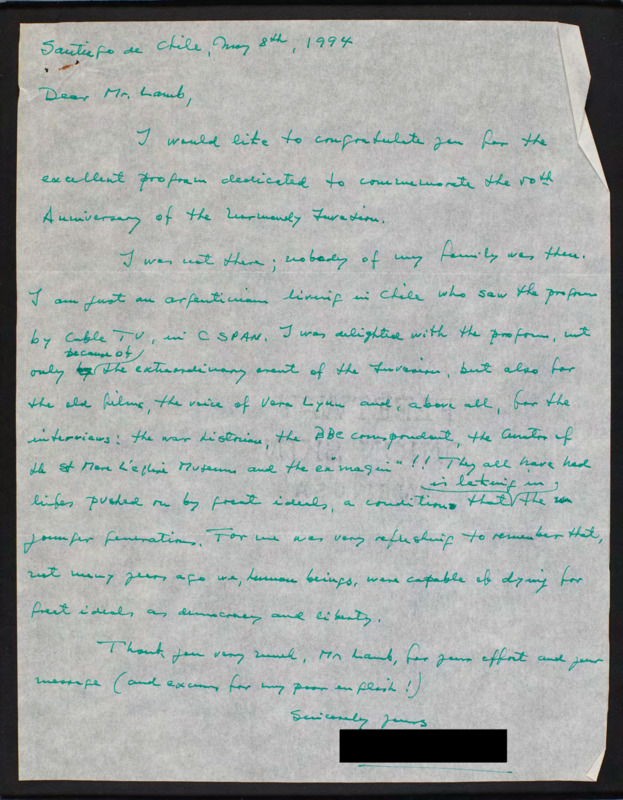 Santiago de Chile, May 8th, 1994
Dear Mr. Lamb,
I would like to congratulate you for the
excellent program dedicated to commemorate the 50th
Anniversary of the Normandy Invasion.
I was not there; nobody of my family was there.
I am just an argentinian living in Chile who saw the program
by Cable TV, in C SPAN. I was delighted with the program, not
because of
only the extraordinary event of the Invasion, but also for
the old films, the voice of Vera Lynn and, above all, for the
interviews: the war historian, the BBC correspondent, the curator of
the St Mere L'eglise Museum and the ex "maquis"!! They all have had
is lacking in
lifes pushed on by great ideals, a condition that the
younger generations. For me was very refreshing to remember that,
not many years ago we, human beings, were capable of dying for
great ideals as democracy and liberty.
Thank you very much, Mr Lamb, for your effort and your
message (and excuse for my poor english!)
Sincerely yours